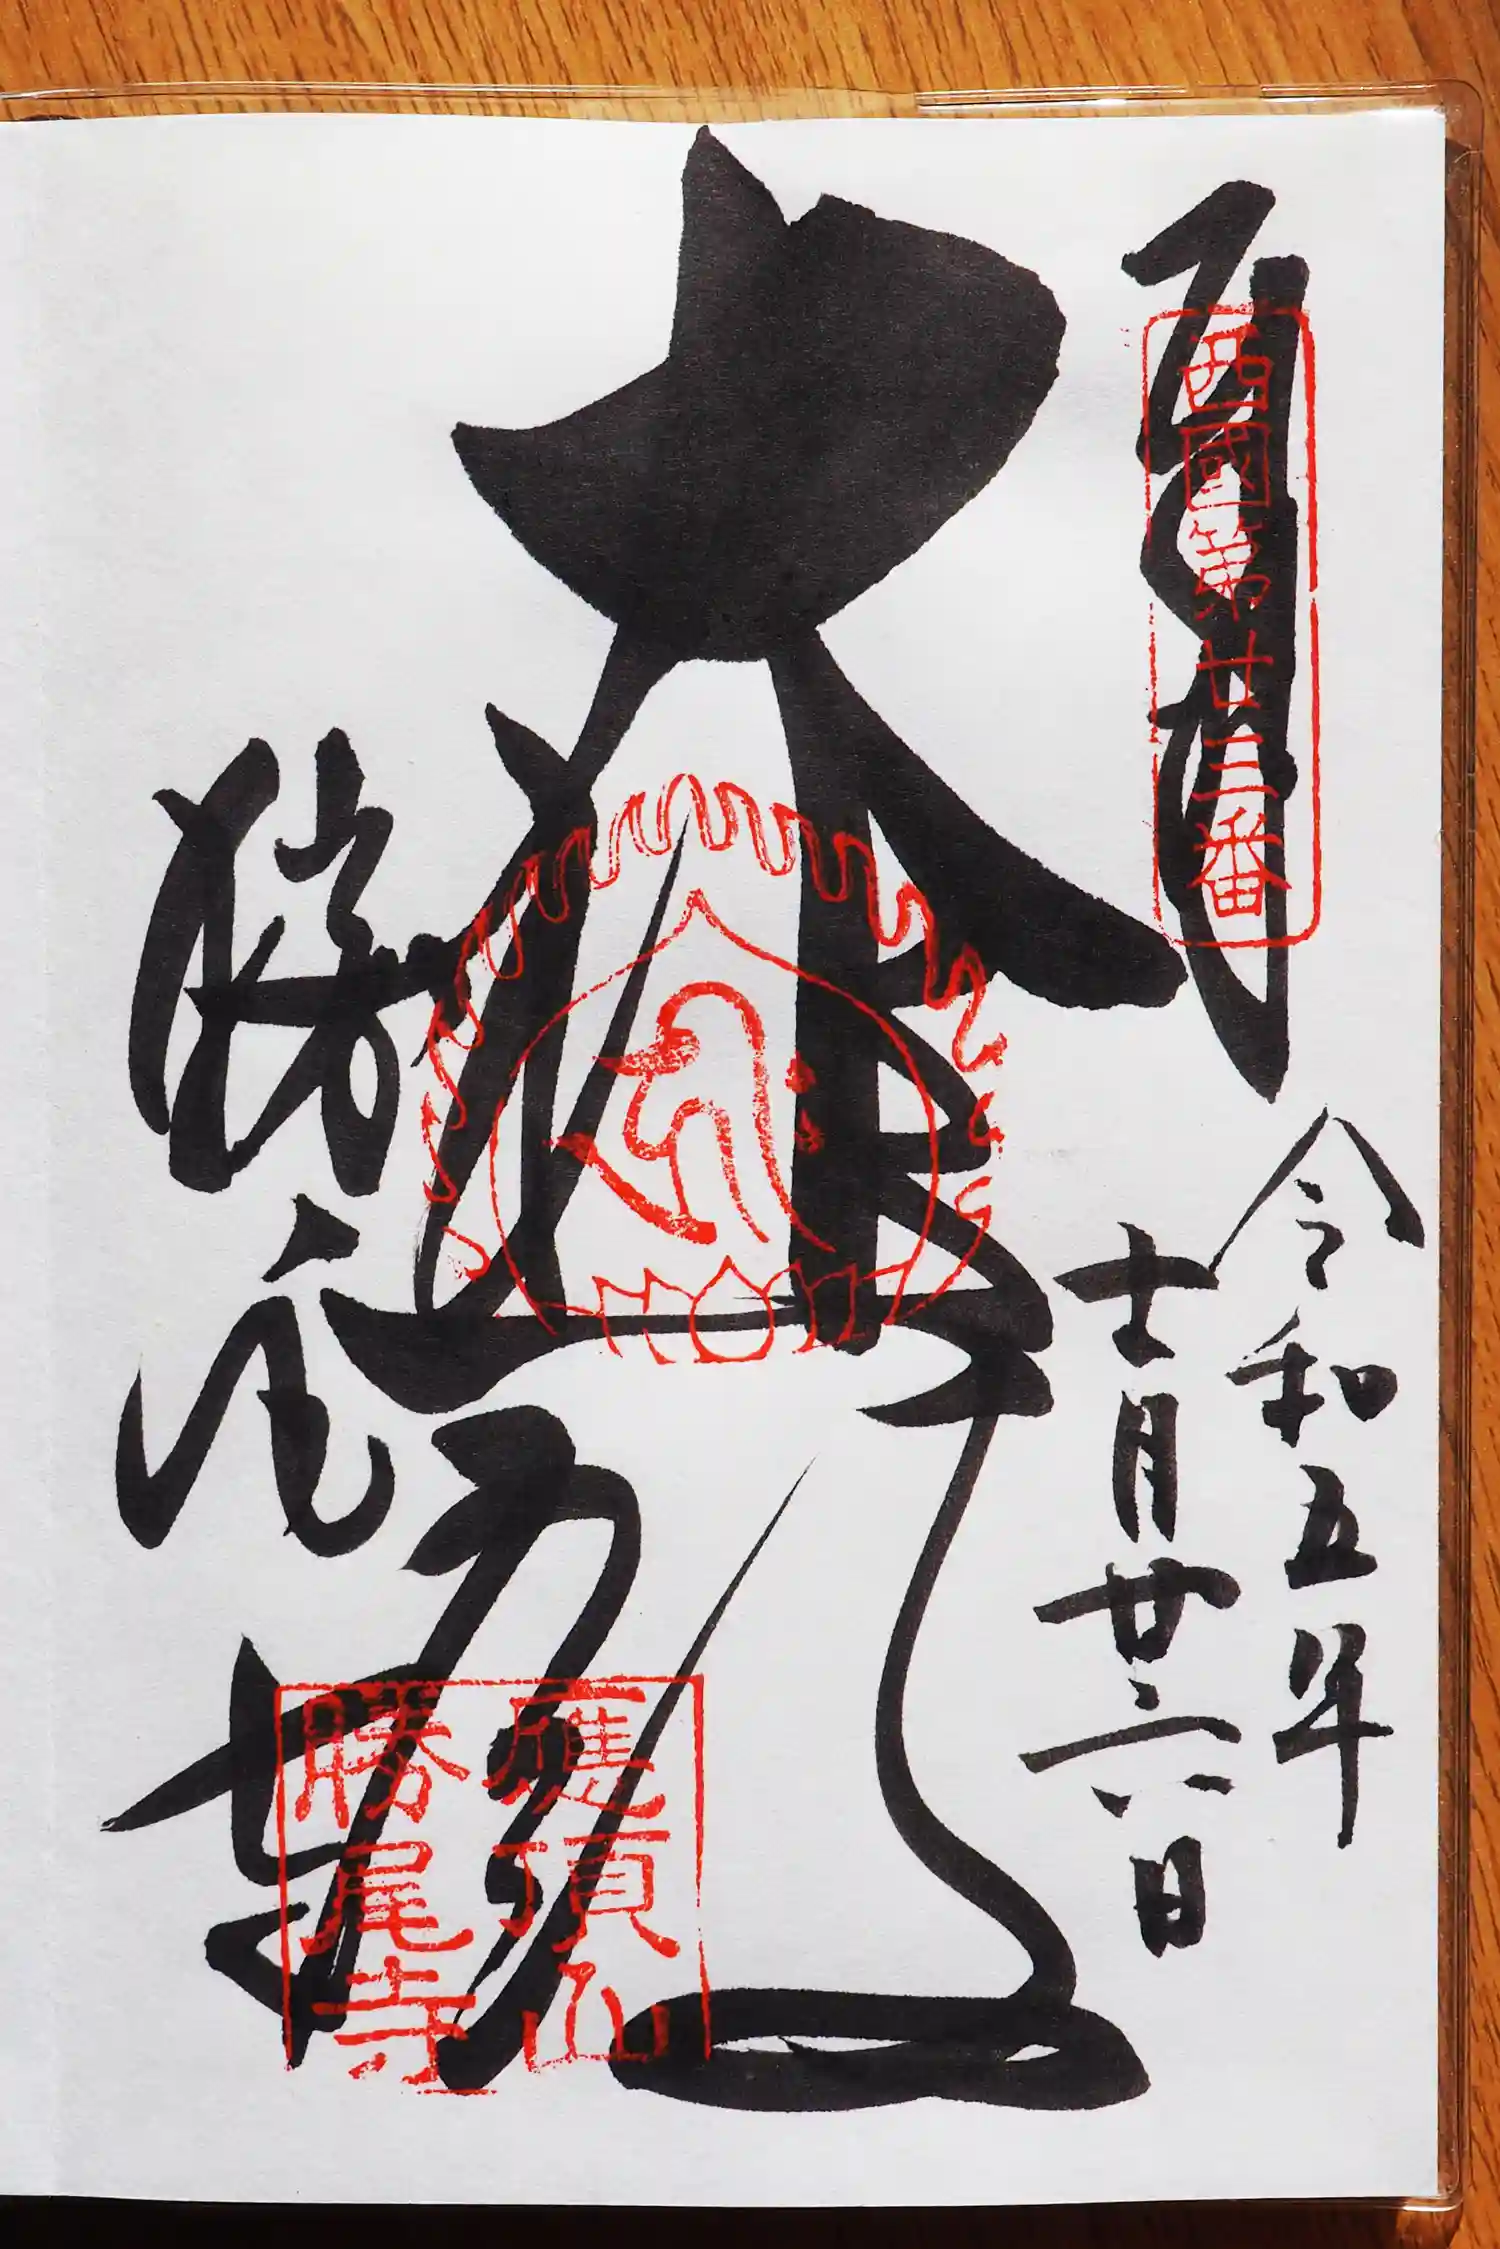 奉拝
西國第廿三番
令和五年
十月廿六日
大悲殿
勝尾寺
應頂山
勝尾寺